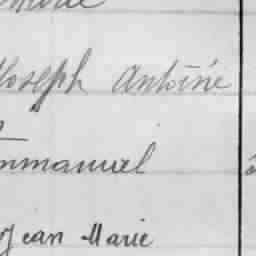 Joseph Antoine
Emmanuel
Jean Marie